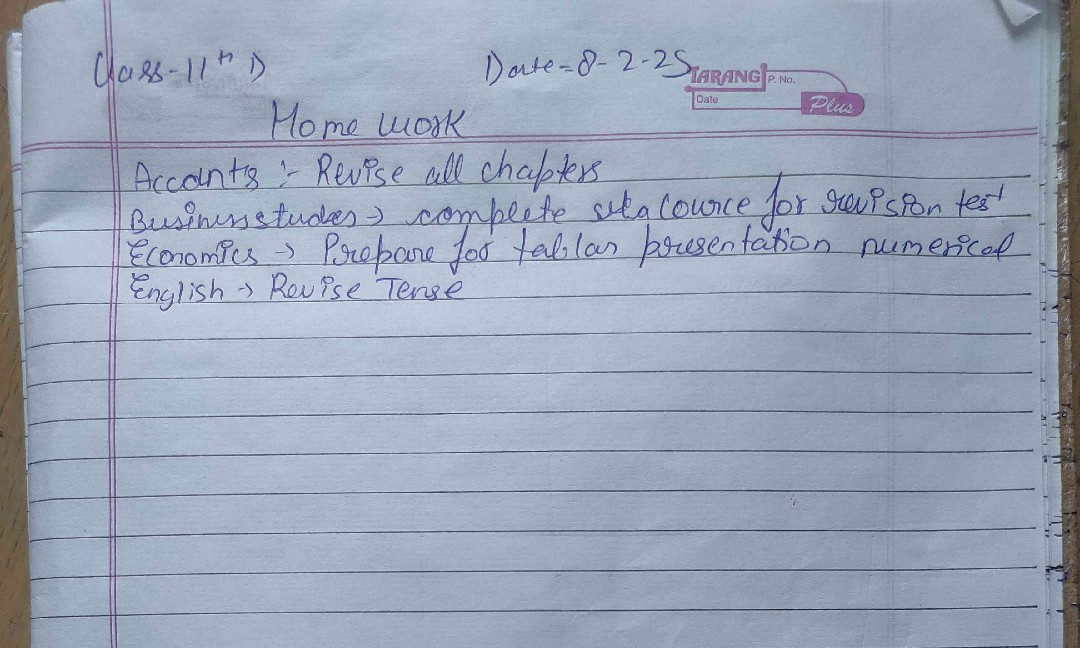 Class-11th D Date=8-2-25
TARANG P. No.
Date Plus
Home work
Accounts :- Revise all chapters
Businessstudes→ complete cource for revision test
Economics → Prepare for tablar presentation numerical
English → Revise Tense